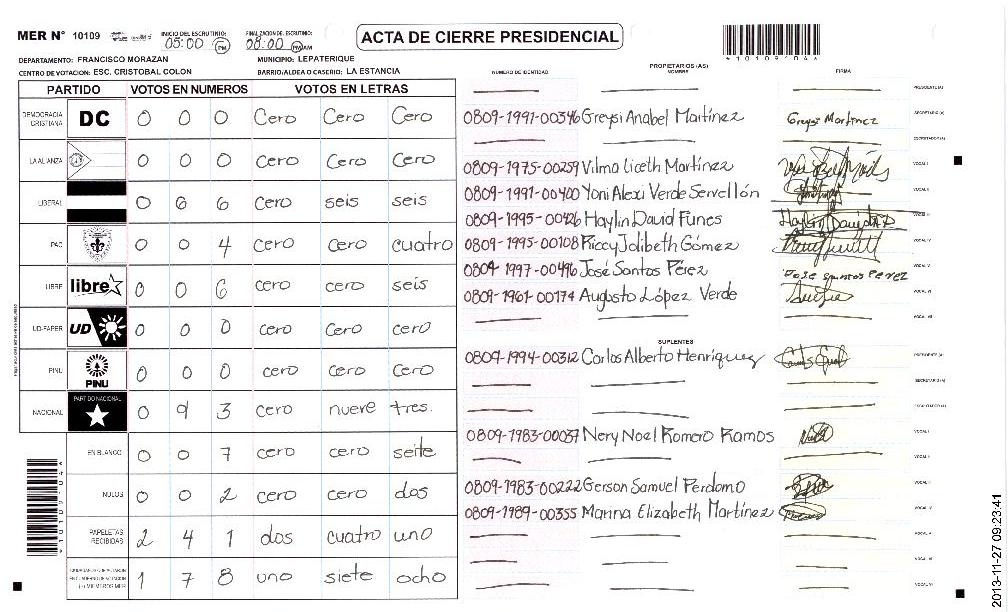 MER N° 10109 INICIO DEL ESCRUTINIO: 05:00 PM FINALIZACION DEL ESCRUTINIO: 08:00 PM AM
ACTA DE CIERRE PRESIDENCIAL
*10109104*
DEPARTAMENTO: FRANCISCO MORAZAN MUNICIPIO: LEPATERIQUE
CENTRO DE VOTACION: ESC. CRISTOBAL COLON BARRIO/ALDEA O CASERIO: LA ESTANCIA
PARTIDO VOTOS EN NUMEROS VOTOS EN LETRAS
DEMOCRACIA CRISTIANA DC 0 0 0 Cero Cero Cero
LA ALIANZA 0 0 0 cero Cero Cero
LIBERAL 0 6 6 cero seis seis
PAC 0 0 4 cero cero cuatro
LIBRE libre 0 0 6 cero cero seis
UD-FAPER UD 0 0 0 cero cero cero
PINU PINU 0 0 0 cero cero cero
NACIONAL PARTIDO NACIONAL 0 9 3 cero nueve tres
EN BLANCO 0 0 7 cero cero seite
NULOS 0 0 2 cero cero dos
PAPELETAS RECIBIDAS 2 4 1 dos cuatro uno
1 7 8 uno siete ocho
NUMERO DE IDENTIDAD PROPIETARIOS (AS) NOMBRE FIRMA
PRESIDENTE (A)
0809-1991-00346 Greysi Anabel Martínez Greysi Martinez SECRETARIO (A)
ESCRUTADOR (A)
0809-1975-00259 Vilma Liceth Martínez VOCAL I
0809-1991-00400 Yoni Alexi Verde Servellón VOCAL II
0809-1995-00426 Haylin David Funes VOCAL III
0809-1995-00108 Riccy Jolibeth Gómez VOCAL IV
0809 1997-00496 José Santos Pérez Jose santos Perez VOCAL V
0809-1961-00174 Augusto López Verde VOCAL VI
VOCAL VII
SUPLENTES
0809-1994-00312 Carlos Alberto Henríquez PRESIDENTE (A)
SECRETARIO (A)
ESCRUTADOR (A)
0809-1983-00037 Nery Noel Romero Ramos VOCAL I
VOCAL II
0809-1983-00222 Gerson Samuel Perdomo
0809-1989-00355 Marina Elizabeth Martínez
*10109104*
2013-11-27 09:23:41